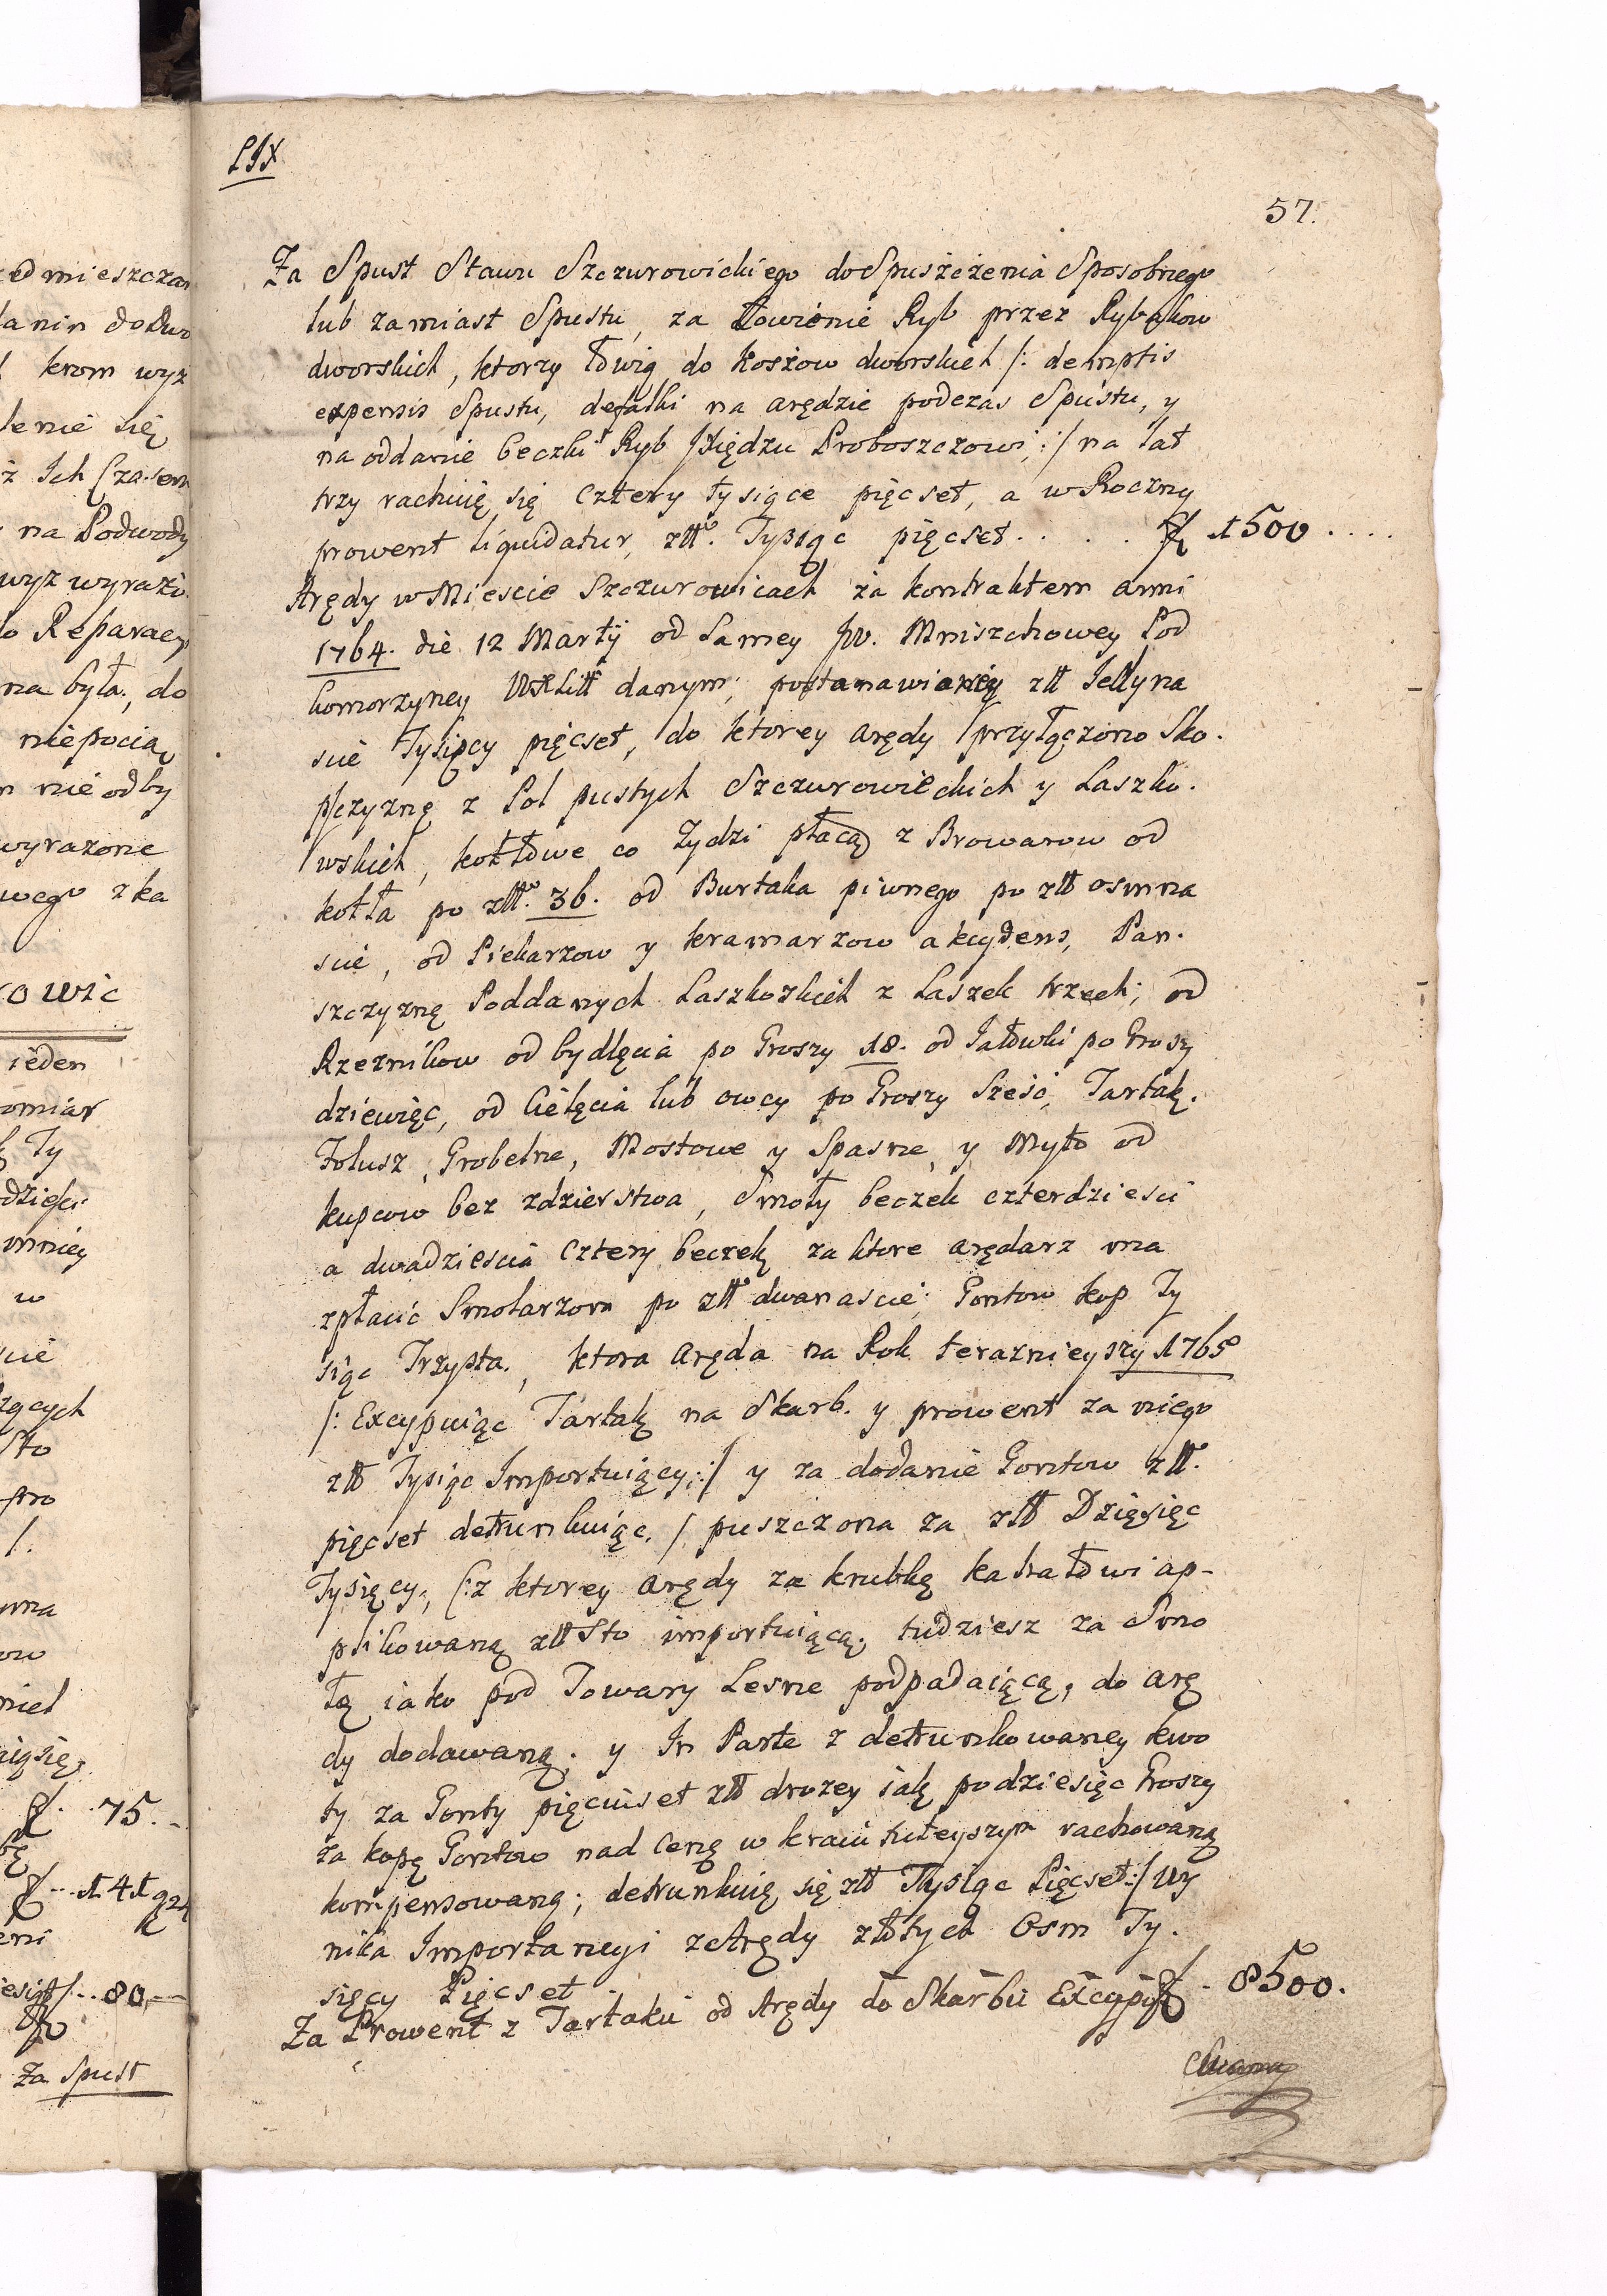 LIX
57.
Za Spust Stawu Szczurowickiego do Spuszczenia Sposobnego
lub zamiast Spustu, za Łowienie Ryb przez Rybakow
dworskich, ktorzy łowią do koszow dworskich /: demptis
expensis Spustu, defalki na arędzie podczas Spustu, y
na oddanie beczki Ryb Xiędzu Proboszczowi :/ na lat
trzy rachuię się cztery tysiące pięcset, a w Roczny
prowent liquidatur, złł. Tysiąc pięcset . . . . f 1500 . . . .
Arędy w Miescie Szczurowicach za kontraktem anni
1764. die 12 Martij od Samey Jw. Mniszchowey Pod
komorzyney danym; postanawianey złł Iedyna
scie Tysięcy pięcset, do ktorey arędy przyłączono Sko.
pczyznę z Pol pustych Szczurowieckich y Laszko.
wskich, kotłowe co Zydzi płacą z Browarow od
kotła po złł. 36. od Burtaka piwnego po złł osmna
scie, od Piekarzow y kramarzow akcydens, Pan.
szczyznę Poddanych Laszkoskich z Laszek trzech; od
Rzeznikow od bydlęcia po Groszy 18. od Jałowki po Groszy
dziewięc, od Cielęcia lub owcy po Groszy Sześć, Tartak.
Folusz, Grobelne, Mostowe y Spasne, y Myto od
kupcow bez zdzierstwa, Smoły beczek czterdziesci
a dwadziescia Cztery beczek za ktore arędarz ma
zpłacić Smolarzom po złł dwanascie; Gontow kop Ty
siąc Trzysta, ktora aręda na Rok terazneyszy 1765
/: Excypuiąc Tartak na Skarb. y prowent za niego
złł Tysiąc Importuiący :/ y za dodanie Gontow złł.
pięcset detrunkuiąc, / puszczona za złł Dzięsięc
Tysięcy, (:z ktorey arędy za krubkę kahałowi ap-
plikowaną złł Sto importuiącą; tudziesz za Smo
łę iako pod Towary Lesne podpadaiącą, do arę
dy dodawaną; y In Parte z detrunkowaney kwo
ty za Gonty pięciuset złł drozey iak podziesięc Groszy
za kopę Gontow nad cenę w kraiu tuteyszym rachowaną
kompensowaną; detrunkuię się złł Tysiąc Pięcset :/ Wy
nika Importancyi z Arędy złotych Osm Ty.
sięcy Pięcset . f . 8500.
Za Prowent z Tartaku od Arędy do Skarbu
ed mieszczan
krom wyz
lenie się
ż Ich Czasem
na Podwody
wyz wyrażo.
Reparacy
na była, do
niepocią
nie odby
wyrazone
wego zka
owic
ieden
omiar
Ty
mniey
w
cie
Sto
75.
80
Za Spust